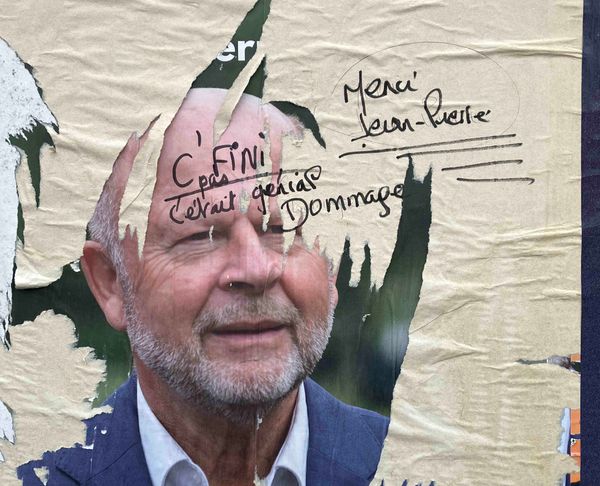 er
Merci
Jean-Pierre
C' FINI
pas
C'était génial
Dommage